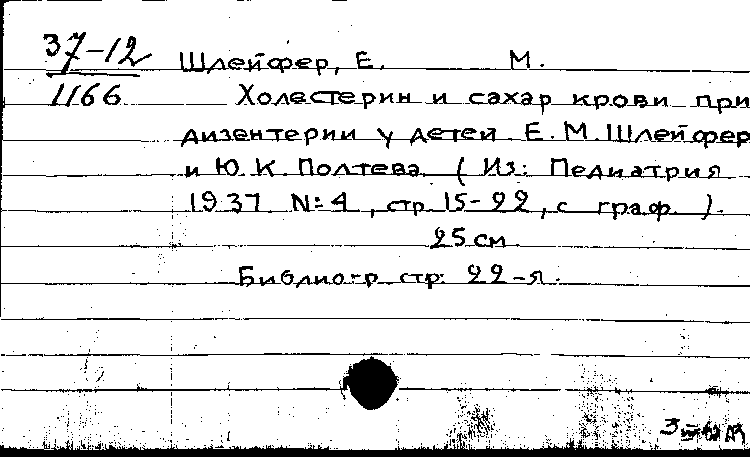 37-12
1166
Шлейфер, Е. М.
Холестерин и сахар крови при
дизентерии у детей Е.М.Шлейфер
и Ю.К.Полтева (Из: Педиатрия
1937 №4, стр 15-22, с граф.).
25 см.
Библиогр стр: 22-я.